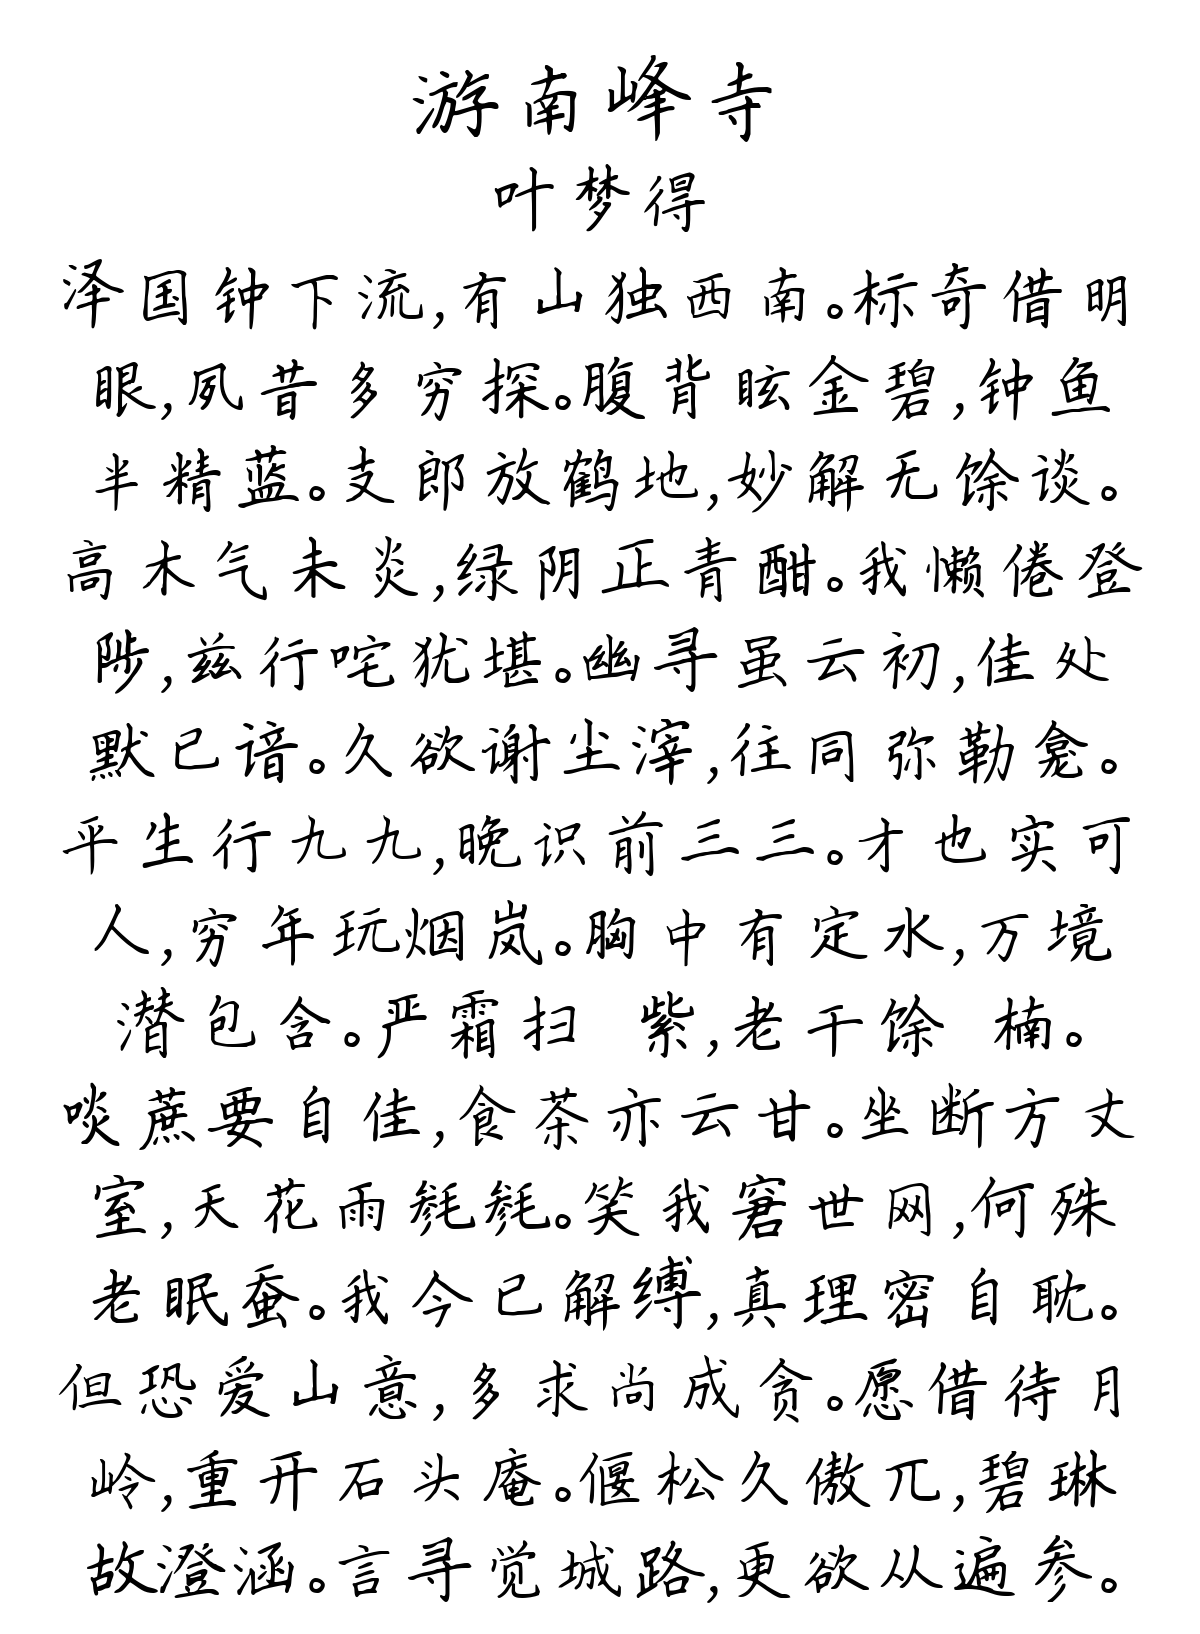 游南峰寺
叶梦得
泽国钟下流,有山独西南。标奇借明
眼,夙昔多穷探。腹背眩金碧,钟鱼
半精蓝。支郎放鹤地,妙解无馀谈。
高木气未炎,绿阴正青酣。我懒倦登
陟,兹行咤犹堪。幽寻虽云初,佳处
默已谙。久欲谢尘滓,往同弥勒龛。
平生行九九,晚识前三三。才也实可
人,穷年玩烟岚。胸中有定水,万境
潜包含。严霜扫 紫,老干馀 楠。
啖蔗要自佳,食茶亦云甘。坐断方丈
室,天花雨毵毵。笑我窘世网,何殊
老眠蚕。我今已解缚,真理密自耽。
但恐爱山意,多求尚成贪。愿借待月
岭,重开石头庵。偃松久傲兀,碧琳
故澄涵。言寻觉城路,更欲从遍参。